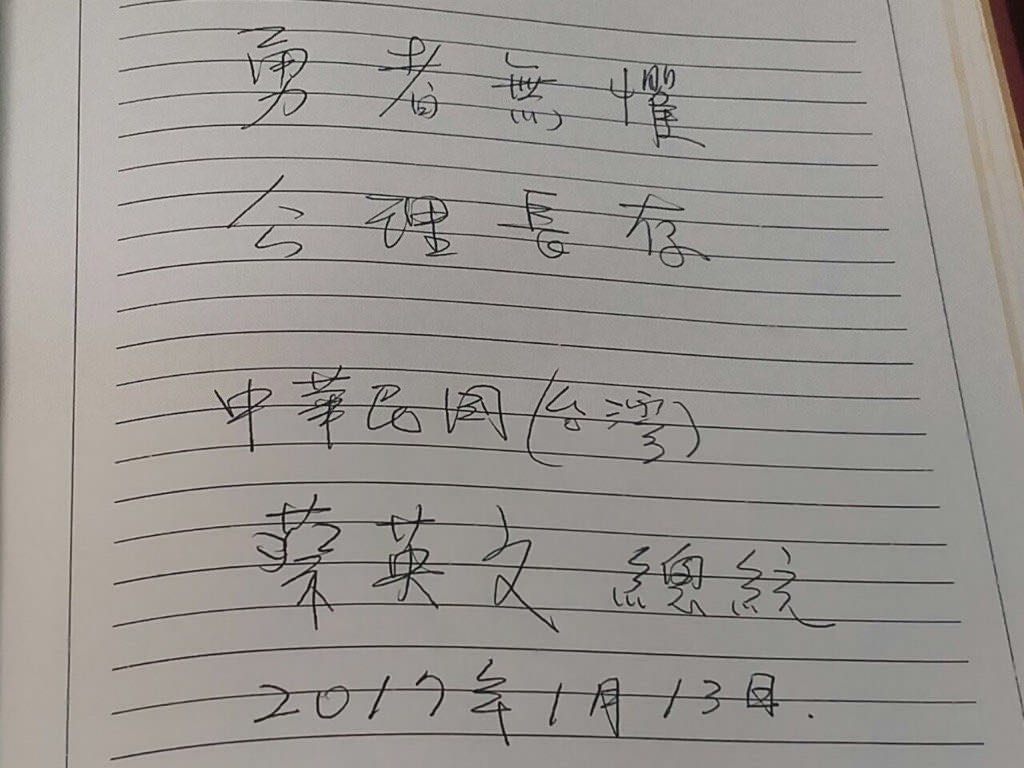 勇者無懼
公理長存
中華民國(台灣)
蔡英文 總統
2017年1月13日.